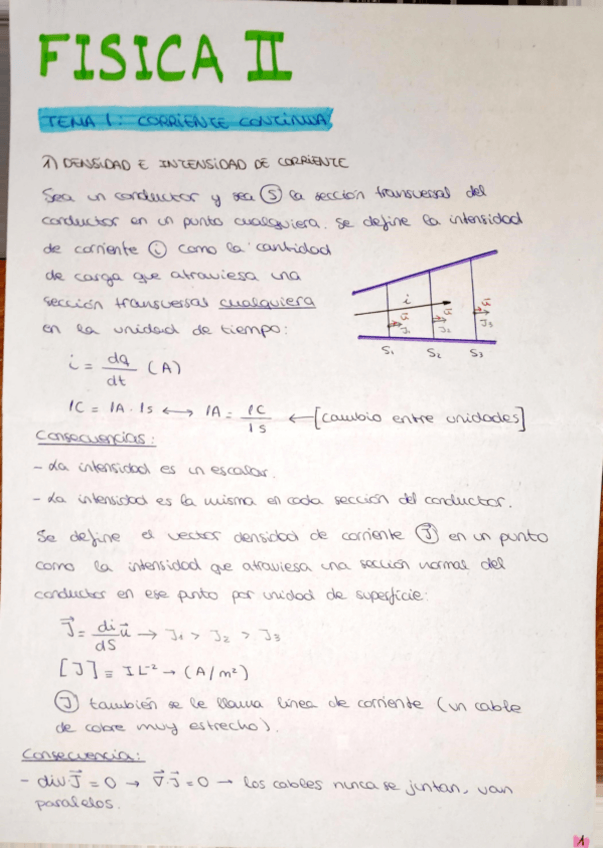 FISICA II
TEMA 1: CORRIENTE CONTINUA
1) DENSIDAD E INTENSIDAD DE CORRIENTE
Sea un conductor y sea (S) la sección transversal del
conductor en un punto cualquiera. Se define la intensidad
de corriente (i) como la cantidad
de carga que atraviesa una
sección transversal cualquiera
en la unidad de tiempo:
i = dq/dt (A)
1C = 1A · 1s ⟷ 1A = 1C/1s ← [cambio entre unidades]
i
u⃗ J₁ u⃗ J₂ u⃗ J₃
S₁ S₂ S₃
Consecuencias:
- La intensidad es un escalar.
- La intensidad es la misma en cada sección del conductor.
Se define el vector densidad de corriente (J⃗) en un punto
como la intensidad que atraviesa una sección normal del
conductor en ese punto por unidad de superficie:
J⃗ = di/dS u⃗ → J₁ > J₂ > J₃
[J] ≡ IL⁻² → (A/m²)
(J) también se le llama línea de corriente (un cable
de cobre muy estrecho).
Consecuencia:
- div J⃗ = 0 → ∇⃗·J⃗ = 0 → los cables nunca se juntan, van
paralelos.
1